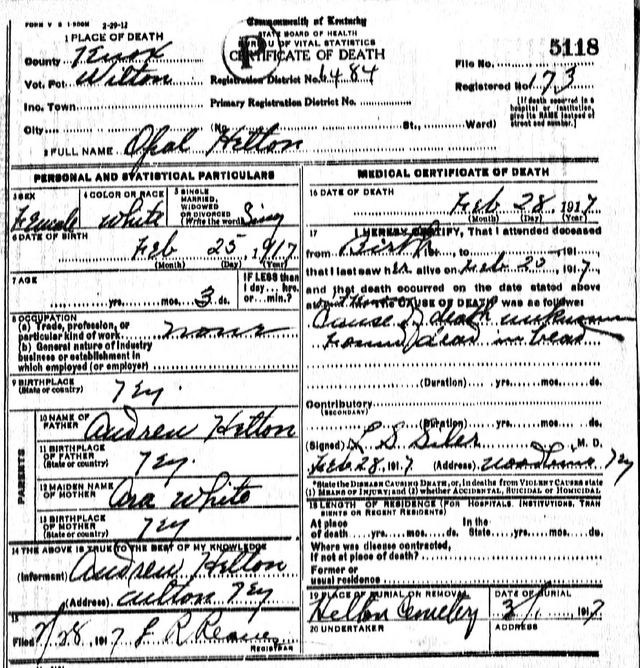 FORM V S 1-500M 2-29-12
Commonwealth of Kentucky
STATE BOARD OF HEALTH
BUREAU OF VITAL STATISTICS
CERTIFICATE OF DEATH
1 PLACE OF DEATH
County Knox
Vot. Pct. Wilton
Inc. Town
City (No. St., Ward)
Registration District No. 6484
Primary Registration District No.
5118
File No.
Registered No. 173
[If death occurred in a hospital or institution, give its NAME instead of street and number.]
2 FULL NAME Opal Helton
PERSONAL AND STATISTICAL PARTICULARS
3 SEX Female
4 COLOR OR RACE White
5 SINGLE MARRIED, WIDOWED OR DIVORCED (Write the word) Sing
6 DATE OF BIRTH Feb 25, 1917
(Month) (Day) (Year)
7 AGE yrs. mos. 3 ds.
IF LESS than 1 day... hrs. or... min.?
8 OCCUPATION
(a) Trade, profession, or particular kind of work none
(b) General nature of industry business or establishment in which employed (or employer)
9 BIRTHPLACE (State or country) Ky.
PARENTS
10 NAME OF FATHER Andrew Helton
11 BIRTHPLACE OF FATHER (State or country) Ky.
12 MAIDEN NAME OF MOTHER Ora White
13 BIRTHPLACE OF MOTHER (State or country) Ky
14 THE ABOVE IS TRUE TO THE BEST OF MY KNOWLEDGE
(Informant) Andrew Helton
(Address) Ky
15
Filed 2/28, 1917 L R
REGISTRAR
MEDICAL CERTIFICATE OF DEATH
16 DATE OF DEATH
Feb 28, 1917
(Month) (Day) (Year)
17 I HEREBY CERTIFY, That I attended deceased
from Birth, 191 , to , 191 ,
that I last saw her alive on Feb 25, 1917,
and that death occurred on the date stated above
at m. The CAUSE OF DEATH was as follows:
Cause of death unknown
Found dead in bead
(Duration) yrs. mos. ds.
Contributory
(SECONDARY)
(Duration) yrs. mos. ds.
(Signed) L S Siler, M. D.
Feb 28, 1917 (Address) Woodbine Ky
*State the DISEASE CAUSING DEATH, or, in deaths from VIOLENT CAUSES state
(1) MEANS OF INJURY; and (2) whether ACCIDENTAL, SUICIDAL or HOMICIDAL
18 LENGTH OF RESIDENCE (FOR HOSPITALS, INSTITUTIONS, TRANSIENTS OR RECENT RESIDENTS)
At place of death yrs. mos. ds. In the State yrs. mos. ds.
Where was disease contracted, If not at place of death?
Former or usual residence
19 PLACE OF BURIAL OR REMOVAL Helton Cemetery
DATE OF BURIAL 3/1, 1917
20 UNDERTAKER
ADDRESS